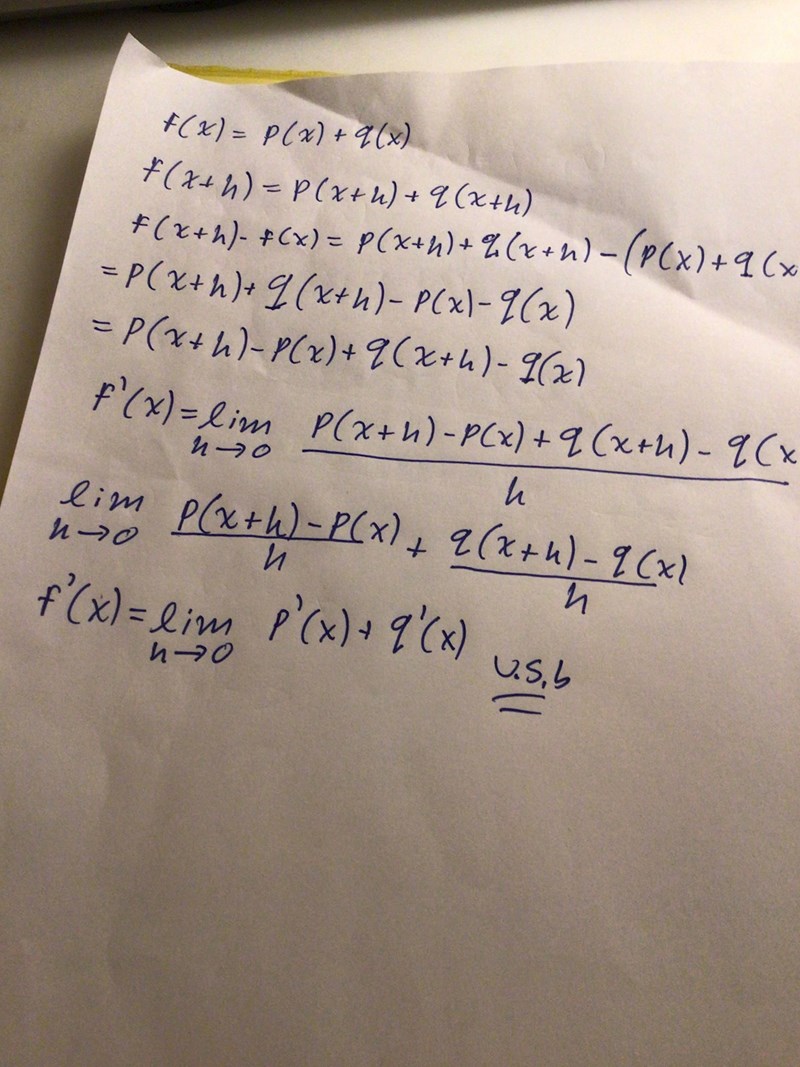 f(x) = p(x) + q(x)
f(x+h) = p(x+h) + q(x+h)
f(x+h) - f(x) = p(x+h) + q(x+h) - (p(x) + q(x
= p(x+h) + q(x+h) - p(x) - q(x)
= p(x+h) - p(x) + q(x+h) - q(x)
f'(x) = lim p(x+h) - p(x) + q(x+h) - q(x
h→0 h
lim p(x+h) - p(x) + q(x+h) - q(x)
h→0 h h
f'(x) = lim p'(x) + q'(x)
h→0 v.s.b